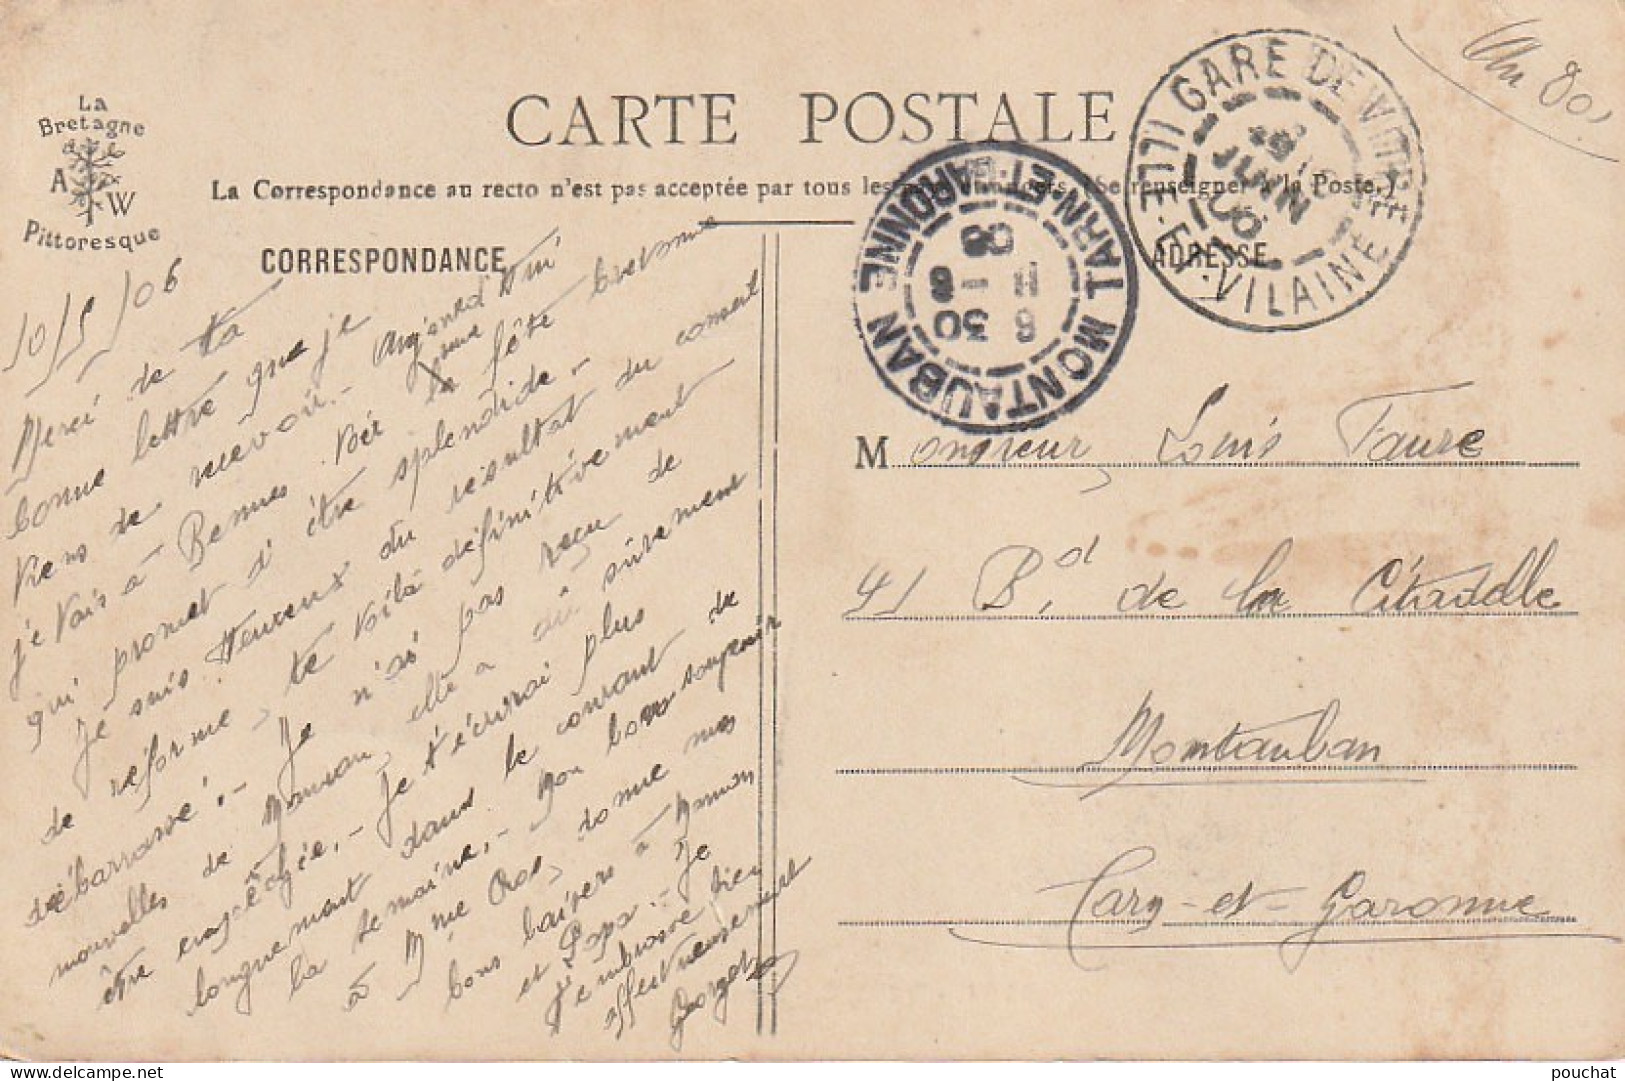 La
Bretagne
A W
Pittoresque
CARTE POSTALE
La Correspondance au recto n'est pas acceptée par tous les (Se renseigner à la Poste.)
CORRESPONDANCE
ADRESSE
GARE DE VITRÉ
ILLE-ET-VILAINE
JUIN
MONTAUBAN
TARN-ET-GARONNE
10/5/06
Merci de ta
bonne lettre que je
viens de recevoir. - Aujourd'hui
je vais à Rennes voir la fête bretonne
qui promet d'être splendide. -
Je suis heureux du résultat du conseil
de réforme, te voilà définitivement
débarrassé. - Je n'ai pas reçu de
nouvelles de Maman, elle a dû sûrement
être . - Je t'écrirai plus
longuement dans le courant de
la semaine. - Mon bon souvenir
à Mme Ros, donne mes
bons baisers à Maman
et Papa. - Je
t'embrasse bien
affectueusement
Georges
Monsieur Louis Faure
41 Bd. de la Citadelle
Montauban
Tarn-et-Garonne
pouchat